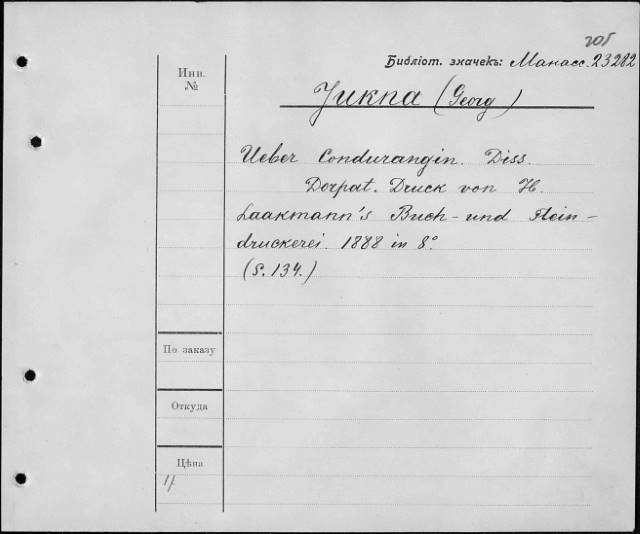 205
Библіот. значекъ: Манасс. 23282
Инв.
№
Jukna (Georg)
Ueber Condurangin. Diss.
Dorpat. Druck von H.
Laakmann's Buch- und Stein-
druckerei. 1888 in 8°
(S. 134.)
По заказу
Откуда
Цѣна